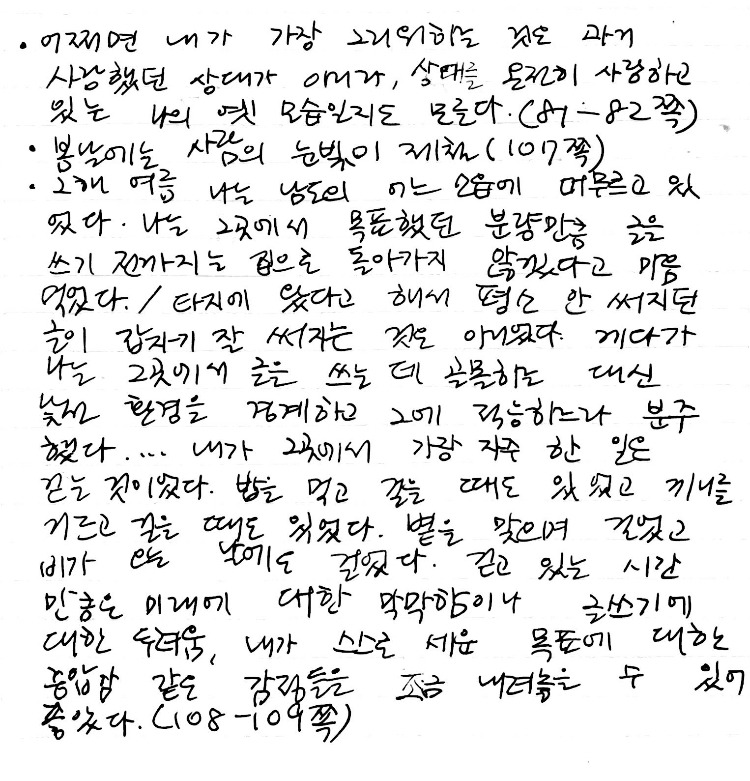 • 어쩌면 내가 가장 그리워하는 것은 과거
사랑했던 상대가 아니라, 상대를 온전히 사랑하고
있는 나의 옛 모습일지도 모른다. (81-82쪽)
• 봄날에는 사람의 눈빛이 제철 (107쪽)
• 그해 여름 나는 남도의 어느 소읍에 머무르고 있
었다. 나는 그곳에서 목표했던 분량만큼 글을
쓰기 전까지는 집으로 돌아가지 않겠다고 마음
먹었다. / 타지에 왔다고 해서 평소 안 써지던
글이 갑자기 잘 써지는 것은 아니었다. 게다가
나는 그곳에서 글을 쓰는 데 골몰하는 대신
낯선 환경을 경계하고 그에 적응하느라 분주
했다.... 내가 그곳에서 가장 자주 한 일은
걷는 것이었다. 밥을 먹고 걸을 때도 있었고 끼니를
거르고 걸을 때도 있었다. 볕을 맞으며 걸었고
비가 오는 날에도 걸었다. 걷고 있는 시간
만큼은 미래에 대한 막막함이나 글쓰기에
대한 두려움, 내가 스스로 세운 목표에 대한
중압감 같은 감정들을 조금 내려놓을 수 있어
좋았다. (108-109쪽)